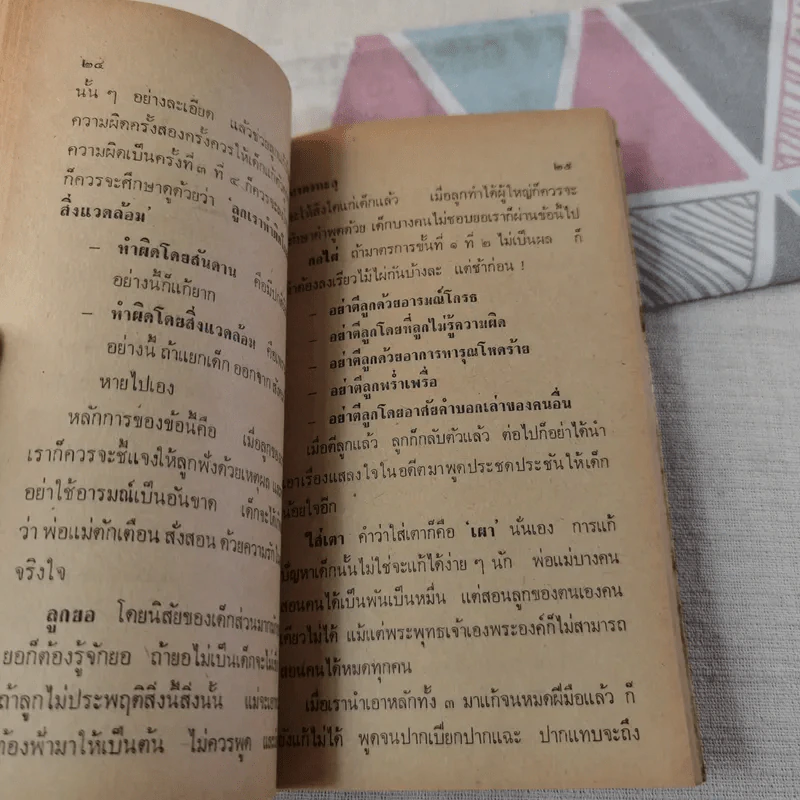 ๒๔
นั้น ๆ อย่างละเอียด แล้วช่วย
ความผิดครั้งสองครั้งควรให้เด็กแก้
ความผิดเป็นครั้งที่ ๓ ที่ ๔ ก็ควรจะ
ก็ควรจะศึกษาดูด้วยว่า 'ลูกเราทำผิด
สิ่งแวดล้อม'
– ทำผิดโดยสันดาน คือมี
อย่างนี้ก็แก้ยาก
– ทำผิดโดยสิ่งแวดล้อม คือ
อย่างนี้ ถ้าแยกเด็ก ออกจาก
หายไปเอง
หลักการของข้อนี้คือ เมื่อลูก
เราก็ควรจะชี้แจงให้ลูกฟังด้วยเหตุผล
อย่าใช้อารมณ์เป็นอันขาด เด็กจะได้
ว่า พ่อแม่ตักเตือน สั่งสอน ด้วยความรัก
จริงใจ
ลูกยอ โดยนิสัยของเด็กส่วนมาก
ยอก็ต้องรู้จักยอ ถ้ายอไม่เป็นเด็กจะ
ถ้าลูกไม่ประพฤติสิ่งนี้สิ่งนั้น แม่จะ
ต้องพ้ามาให้เป็นต้น ไม่ควรพูด
๒๕
จะให้สิ่งใดแก่เด็กแล้ว เมื่อลูกทำได้ผู้ใหญ่ก็ควรจะ
รักษาคำพูดด้วย เด็กบางคนไม่ชอบยอเราก็ผ่านข้อนี้ไป
กอไผ่ ถ้ามาตรการขั้นที่ ๑ ที่ ๒ ไม่เป็นผล ก็
ต้องลงเรียวไม้ไผ่กันบ้างละ แต่ช้าก่อน !
– อย่าตีลูกด้วยอารมณ์โกรธ
– อย่าตีลูกโดยที่ลูกไม่รู้ความผิด
– อย่าตีลูกด้วยอาการทารุณโหดร้าย
– อย่าตีลูกพร่ำเพรื่อ
– อย่าตีลูกโดยอาศัยคำบอกเล่าของคนอื่น
เมื่อตีลูกแล้ว ลูกก็กลับตัวแล้ว ต่อไปก็อย่าได้นำ
เอาเรื่องแสลงใจในอดีตมาพูดประชดประชันให้เด็ก
น้อยใจอีก
ใส่เตา คำว่าใส่เตาก็คือ 'เผา' นั่นเอง การแก้
ปัญหาเด็กนั้นไม่ใช่จะแก้ได้ง่าย ๆ นัก พ่อแม่บางคน
สอนคนได้เป็นพันเป็นหมื่น แต่สอนลูกของตนเองคน
เดียวไม่ได้ แม้แต่พระพุทธเจ้าเองพระองค์ก็ไม่สามารถ
สอนคนได้หมดทุกคน
เมื่อเรานำเอาหลักทั้ง ๓ มาแก้จนหมดฝีมือแล้ว ก็
ยังแก้ไม่ได้ พูดจนปากเปียกปากแฉะ ปากแทบจะถึง